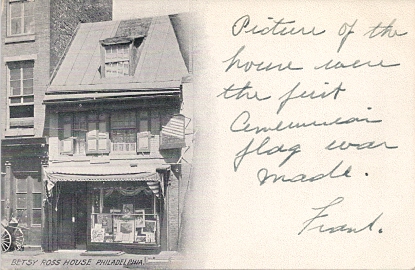 Picture of the
house were
the first
American
flag was
made.
Frank.
BETSY ROSS HOUSE, PHILADELPHIA.